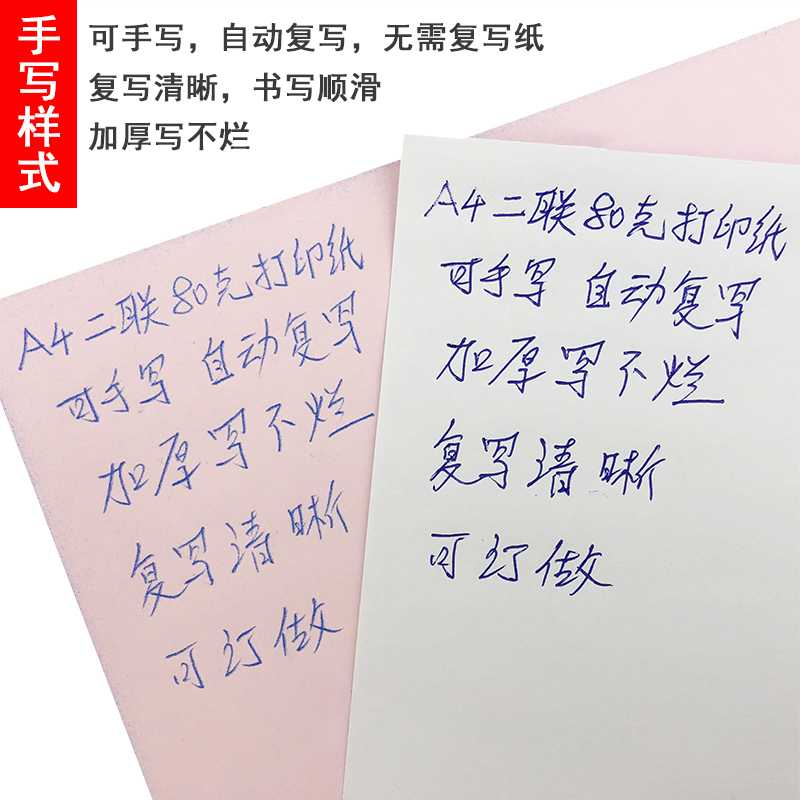 手写样式
可手写，自动复写，无需复写纸
复写清晰，书写顺滑
加厚写不烂
A4二联80克打印纸
可手写 自动复写
加厚写不烂
复写清晰
可订做
A4二联80克打印纸
可手写 自动复写
加厚写不烂
复写清晰
可订做